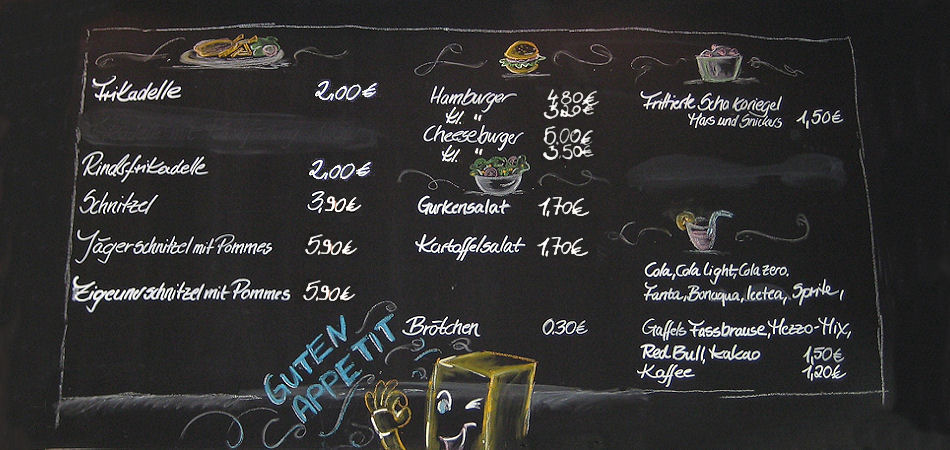 Frikadelle 2,00€
Rindsfrikadelle 2,00€
Schnitzel 3,90€
Jägerschnitzel mit Pommes 5,90€
Zigeunerschnitzel mit Pommes 5,90€
Hamburger 4,80€
kl. " 3,20€
Cheeseburger 5,00€
kl. " 3,50€
Gurkensalat 1,70€
Kartoffelsalat 1,70€
Brötchen 0,30€
Frittierte Schokoriegel
Mars und Snickers 1,50€
Cola, Cola Light, Cola zero,
Fanta, Bonaqua, Icetea, Sprite,
Gaffels Fassbrause, Mezzo-Mix,
Red Bull, Kakao 1,50€
Kaffee 1,20€
GUTEN
APPETIT